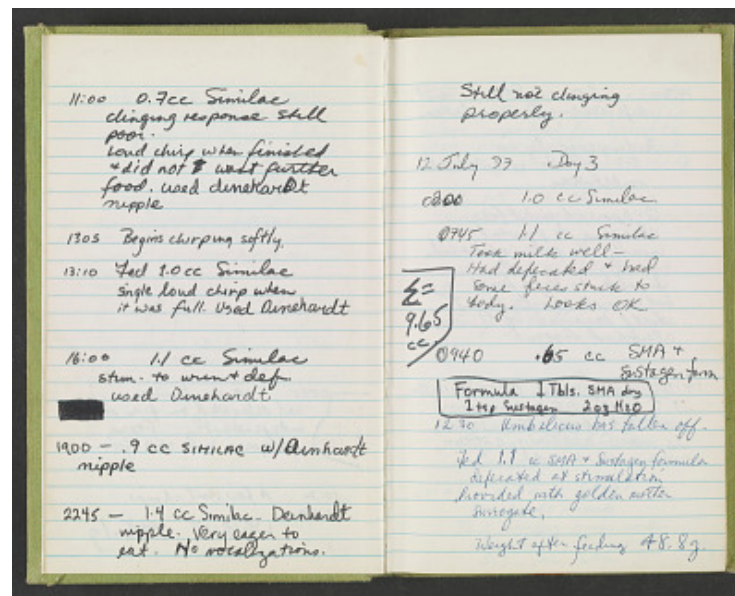 11:00 0.7cc Similac
clinging response still
poor.
Loud chirp when finished
+ did not want further
food. used dunehardt
nipple
1305 Begins chirping softly.
13:10 Fed 1.0cc Similac
single loud chirp when
it was full. Used Dunehardt
16:00 1.1 cc Similac
stim. to urin + def.
used Dunehardt
1900 – .9 cc SIMILAC w/
nipple
2245 – 1.4 cc Similac - Deinhardt
nipple. Very eager to
eat. No vocalizations.
Still not clinging
properly.
12 July 77 Day 3
0200 1.0 cc Similac
0745 1.1 cc Similac
Took milk well –
Had defecated + had
some feces stuck to
body. Looks OK
Σ=
9.65
cc
0940 .65 cc SMA +
Sustagen form
Formula 1 Tbls. SMA dry
1 tsp Sustagen 2oz H2O
1230 Umbilicus has fallen off.
Fed 1.1 cc SMA + Sustagen formula
defecated at stimulation
Provided with golden
surrogate.
Weight after feeding 48.8g.